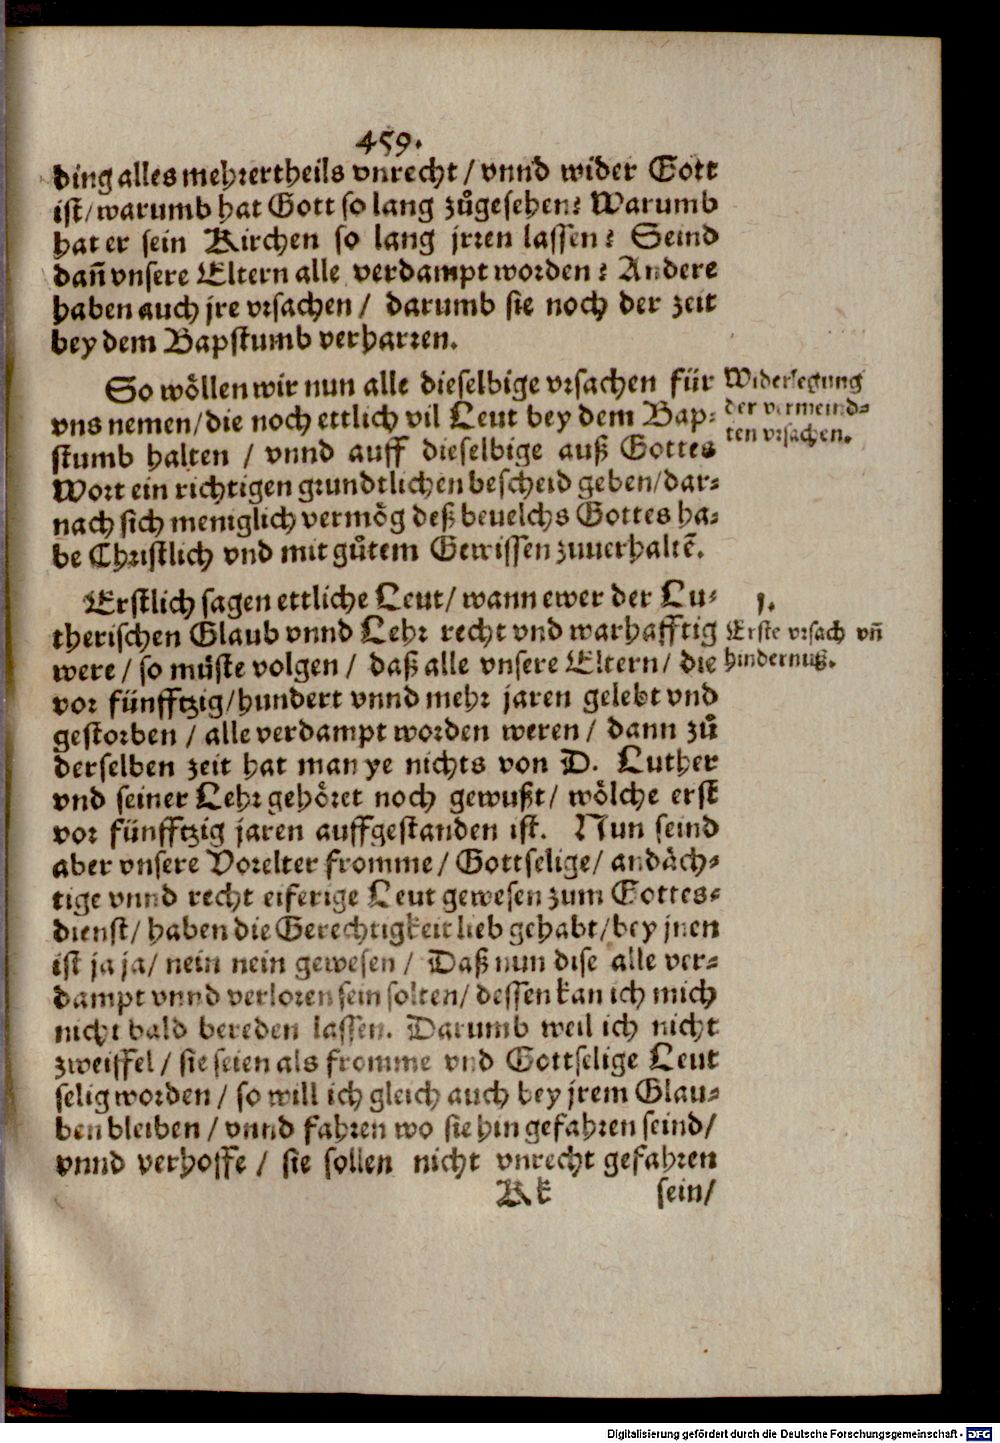 459.
ding alles mehrertheils vnrecht / vnnd wider Gott
ist / warumb hat Gott so lang zůgesehen? Warumb
hat er sein Kirchen so lang jrren lassen? Seind
dañ vnsere Eltern alle verdampt worden? Andere
haben auch jre vrsachen / darumb sie noch der zeit
bey dem Bapstumb verharren.
So wöllen wir nun alle dieselbige vrsachen für
vns nemen / die noch ettlich vil Leut bey dem Bap-
stumb halten / vnnd auff dieselbige auß Gottes
Wort ein richtigen grundtlichen bescheid geben / dar-
nach sich meniglich vermög deß beuelchs Gottes ha-
be Christlich vnd mit gůtem Gewissen zuuerhaltẽ.
Widerlegung
der vermeind-
ten vrsachen.
Erstlich sagen ettliche Leut / wann ewer der Lu-
therischen Glaub vnnd Lehr recht vnd warhafftig
were / so müste volgen / daß alle vnsere Eltern / die
vor fünfftzig / hundert vnnd mehr jaren gelebt vnd
gestorben / alle verdampt worden weren / dann zů
derselben zeit hat man ye nichts von D. Luther
vnd seiner Lehr gehöret noch gewußt / wölche erst
vor fünfftzig jaren auffgestanden ist. Nun seind
aber vnsere Vorelter fromme / Gottselige / andäch-
tige vnnd recht eiferige Leut gewesen zum Gottes-
dienst / haben die Gerechtigkeit lieb gehabt / bey jnen
ist ja ja / nein nein gewesen / Daß nun dise alle ver-
dampt vnnd verloren sein solten / dessen kan ich mich
nicht bald bereden lassen. Darumb weil ich nicht
zweiffel / sie seien als fromme vnd Gottselige Leut
selig worden / so will ich gleich auch bey jrem Glau-
ben bleiben / vnnd fahren wo sie hin gefahren seind /
vnnd verhoffe / sie sollen nicht vnrecht gefahren
1.
Erste vrsach vñ
hindernuß.
Kk sein /
Digitalisierung gefördert durch die Deutsche Forschungsgemeinschaft - DFG